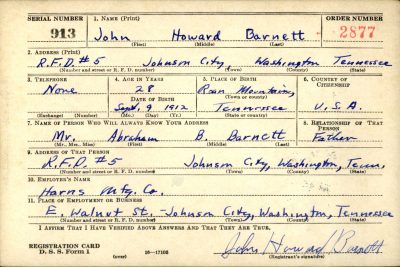 SERIAL NUMBER 1. NAME (Print) ORDER NUMBER
913 John Howard Barnett 2877
(First) (Middle) (Last)
2. ADDRESS (Print)
R.F.D. #5 Johnson City Washington Tennessee
(Number and street or R. F. D. number) (Town) (County) (State)
3. TELEPHONE 4. AGE IN YEARS 5. PLACE OF BIRTH 6. COUNTRY OF CITIZENSHIP
None 28 Roan Mountain,
DATE OF BIRTH (Town or county)
Sept. 9 1912 Tennessee U.S.A.
(Exchange) (Number) (Mo.) (Day) (Yr.) (State or country)
7. NAME OF PERSON WHO WILL ALWAYS KNOW YOUR ADDRESS 8. RELATIONSHIP OF THAT PERSON
Mr. Abraham B. Barnett Father
(Mr., Mrs., Miss) (First) (Middle) (Last)
9. ADDRESS OF THAT PERSON
R.F.D. #5 Johnson City, Washington, Tenn.
(Number and street or R. F. D. number) (Town) (County) (State)
10. EMPLOYER'S NAME
Harris Mfg. Co.
11. PLACE OF EMPLOYMENT OR BUSINESS
E. Walnut St. - Johnson City, Washington, Tennessee
(Number and street or R. F. D. number) (Town) (County) (State)
I AFFIRM THAT I HAVE VERIFIED ABOVE ANSWERS AND THAT THEY ARE TRUE.
REGISTRATION CARD John Howard Barnett
D. S. S. Form 1 (over) 16—17105 (Registrant's signature)